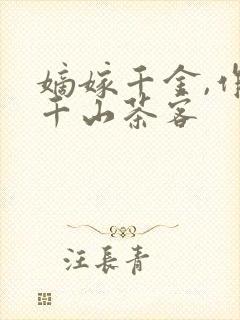 嫡嫁千金,作
千山茶客
汪长青